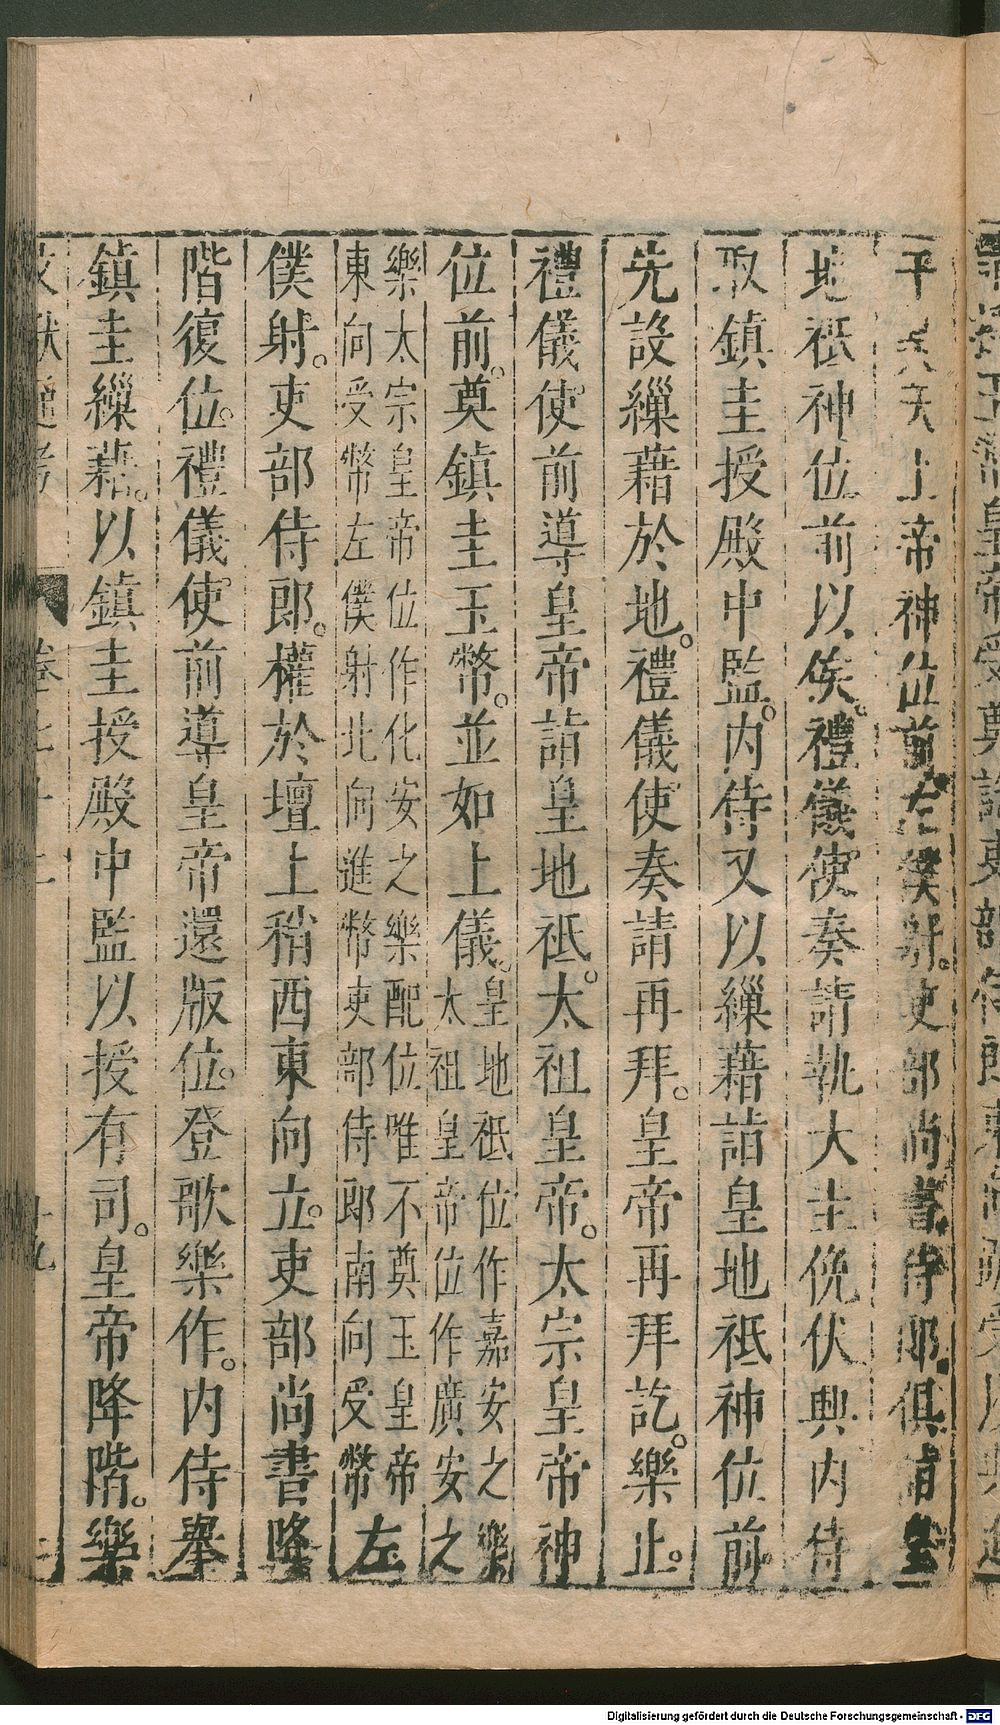 于昊天上帝神位前左僕射吏部尚書侍郎俱詣皇
地祇神位前以俟禮儀使奏請執大圭俛伏興內侍
取鎮圭授殿中監內侍又以繅藉詣皇地祇神位前
先設繅藉於地禮儀使奏請再拜皇帝再拜訖樂止
禮儀使前導皇帝詣皇地祇太祖皇帝太宗皇帝神
位前奠鎮圭玉幣並如上儀皇地祇位作嘉安之樂
太祖皇帝位作廣安之
樂太宗皇帝位作化安之樂配位唯不奠玉皇帝
東向受幣左僕射北向進幣吏部侍郎南向受幣左
僕射吏部侍郎權於壇上稍西東向立吏部尚書降
階復位禮儀使前導皇帝還版位登歌樂作內侍舉
鎮圭繅藉以鎮圭授殿中監以授有司皇帝降階樂
文獻通考 卷七十二 十九
Digitalisierung gefördert durch die Deutsche Forschungsgemeinschaft - DFG